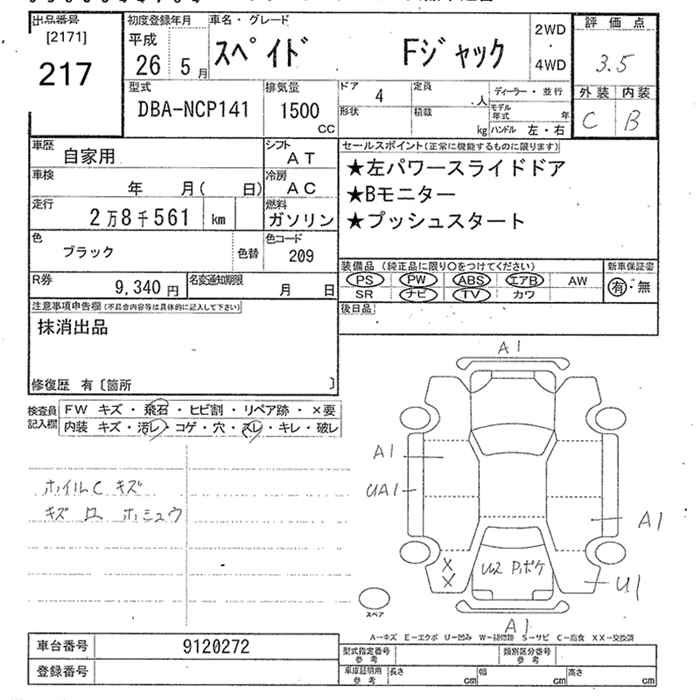 出品番号 初度登録年月 車名・グレード 評価点
[2171] 平成 2WD
217 26 5月 スペイド Fジャック ・ 3.5
4WD
型式 排気量 ドア 4 定員 人 ディーラー・並行 外装 内装
DBA-NCP141 1500 cc 形状 積載 kg モデル年式 年 C B
ハンドル 左・右
車歴 自家用 シフト AT セールスポイント(正常に機能するものに限ります)
車検 年 月( 日) 冷房 AC ★左パワースライドドア
走行 2万8千561 km 燃料 ガソリン ★Bモニター
★プッシュスタート
色 ブラック 色替 色コード 209
装備品 (純正品に限り○をつけてください) 新車保証書
R券 9,340円 名変通知期限 月 日 PS PW ABS エアB AW 有・無
SR ナビ TV カワ
注意事項申告欄(不具合内容等は具体的に記入して下さい) 後日品
抹消出品
修復歴 有〔箇所 〕
検査員 FW キズ・飛石・ヒビ割・リペア跡・×要
記入欄 内装 キズ・汚レ・コゲ・穴・スレ・キレ・破レ
A1
A1
UA1
ホイルC キズ
キズ ロ ホシュウ
A1
X
X
U2 Pボケ
U1
スペア
A1
A－キズ E－エクボ U－凹み W－補修跡 S－サビ C－腐食 XX－交換済
車台番号 9120272 型式指定番号 参考 類別区分番号 参考
登録番号 車庫証明用 参考 長さ cm 幅 cm 高さ cm